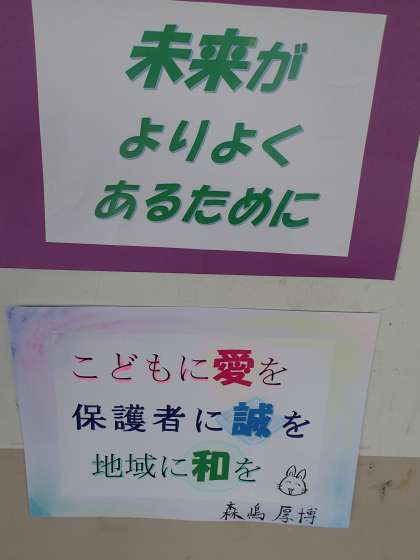 未来が
よりよく
あるために
こどもに愛を
保護者に誠を
地域に和を
森嶋 厚博